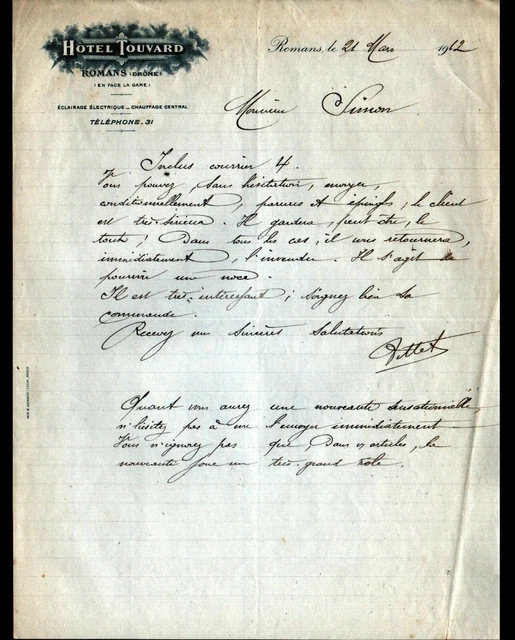 HÔTEL TOUVARD
ROMANS (DRÔME)
(EN FACE LA GARE)
ÉCLAIRAGE ÉLECTRIQUE _ CHAUFFAGE CENTRAL
TÉLÉPHONE. 31
Romans, le 21 Mars 1912
Monsieur Simon
Inclus courrier 4.
Vous pouvez, sans hésitation, envoyer,
conditionnellement, parures et épingles; le client
est très sérieux. Il gardera, peut être, le
tout; Dans tous les cas, il vous retournera,
immédiatement, l'invendu. Il s'agit de
pourvoir une noce.
Il est très-intéressant; soignez bien sa
commande.
Recevez mes sincères salutations
Quant vous aurez une nouveauté sensationnelle,
n'hésitez pas à me l'envoyer immédiatement.
Vous n'ignorez pas que, Dans vos articles, la
nouveauté joue un très-grand rôle.